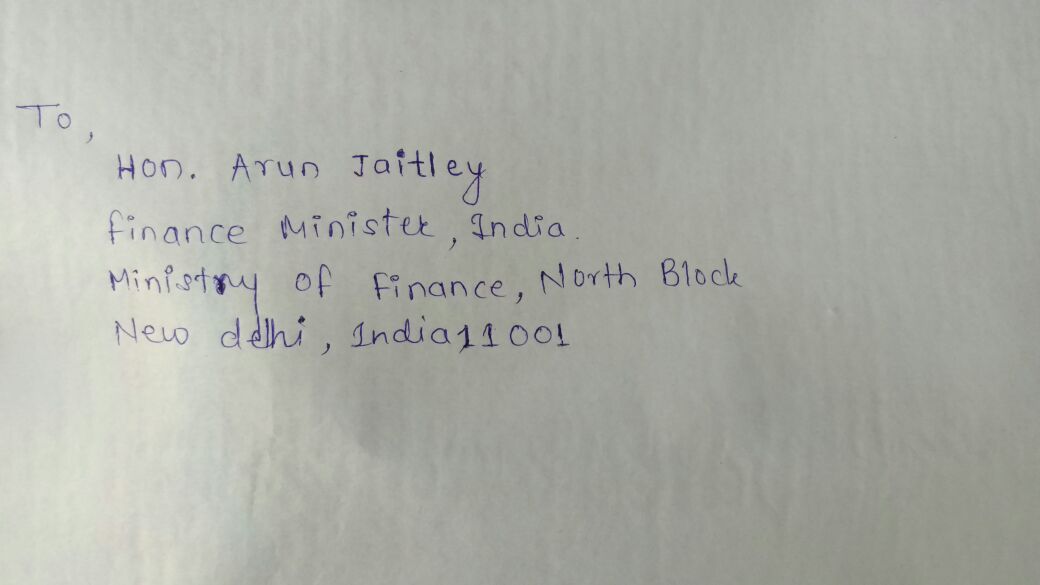 To,
Hon. Arun Jaitley
finance Minister, India.
Ministry of Finance, North Block
New delhi, India 11001